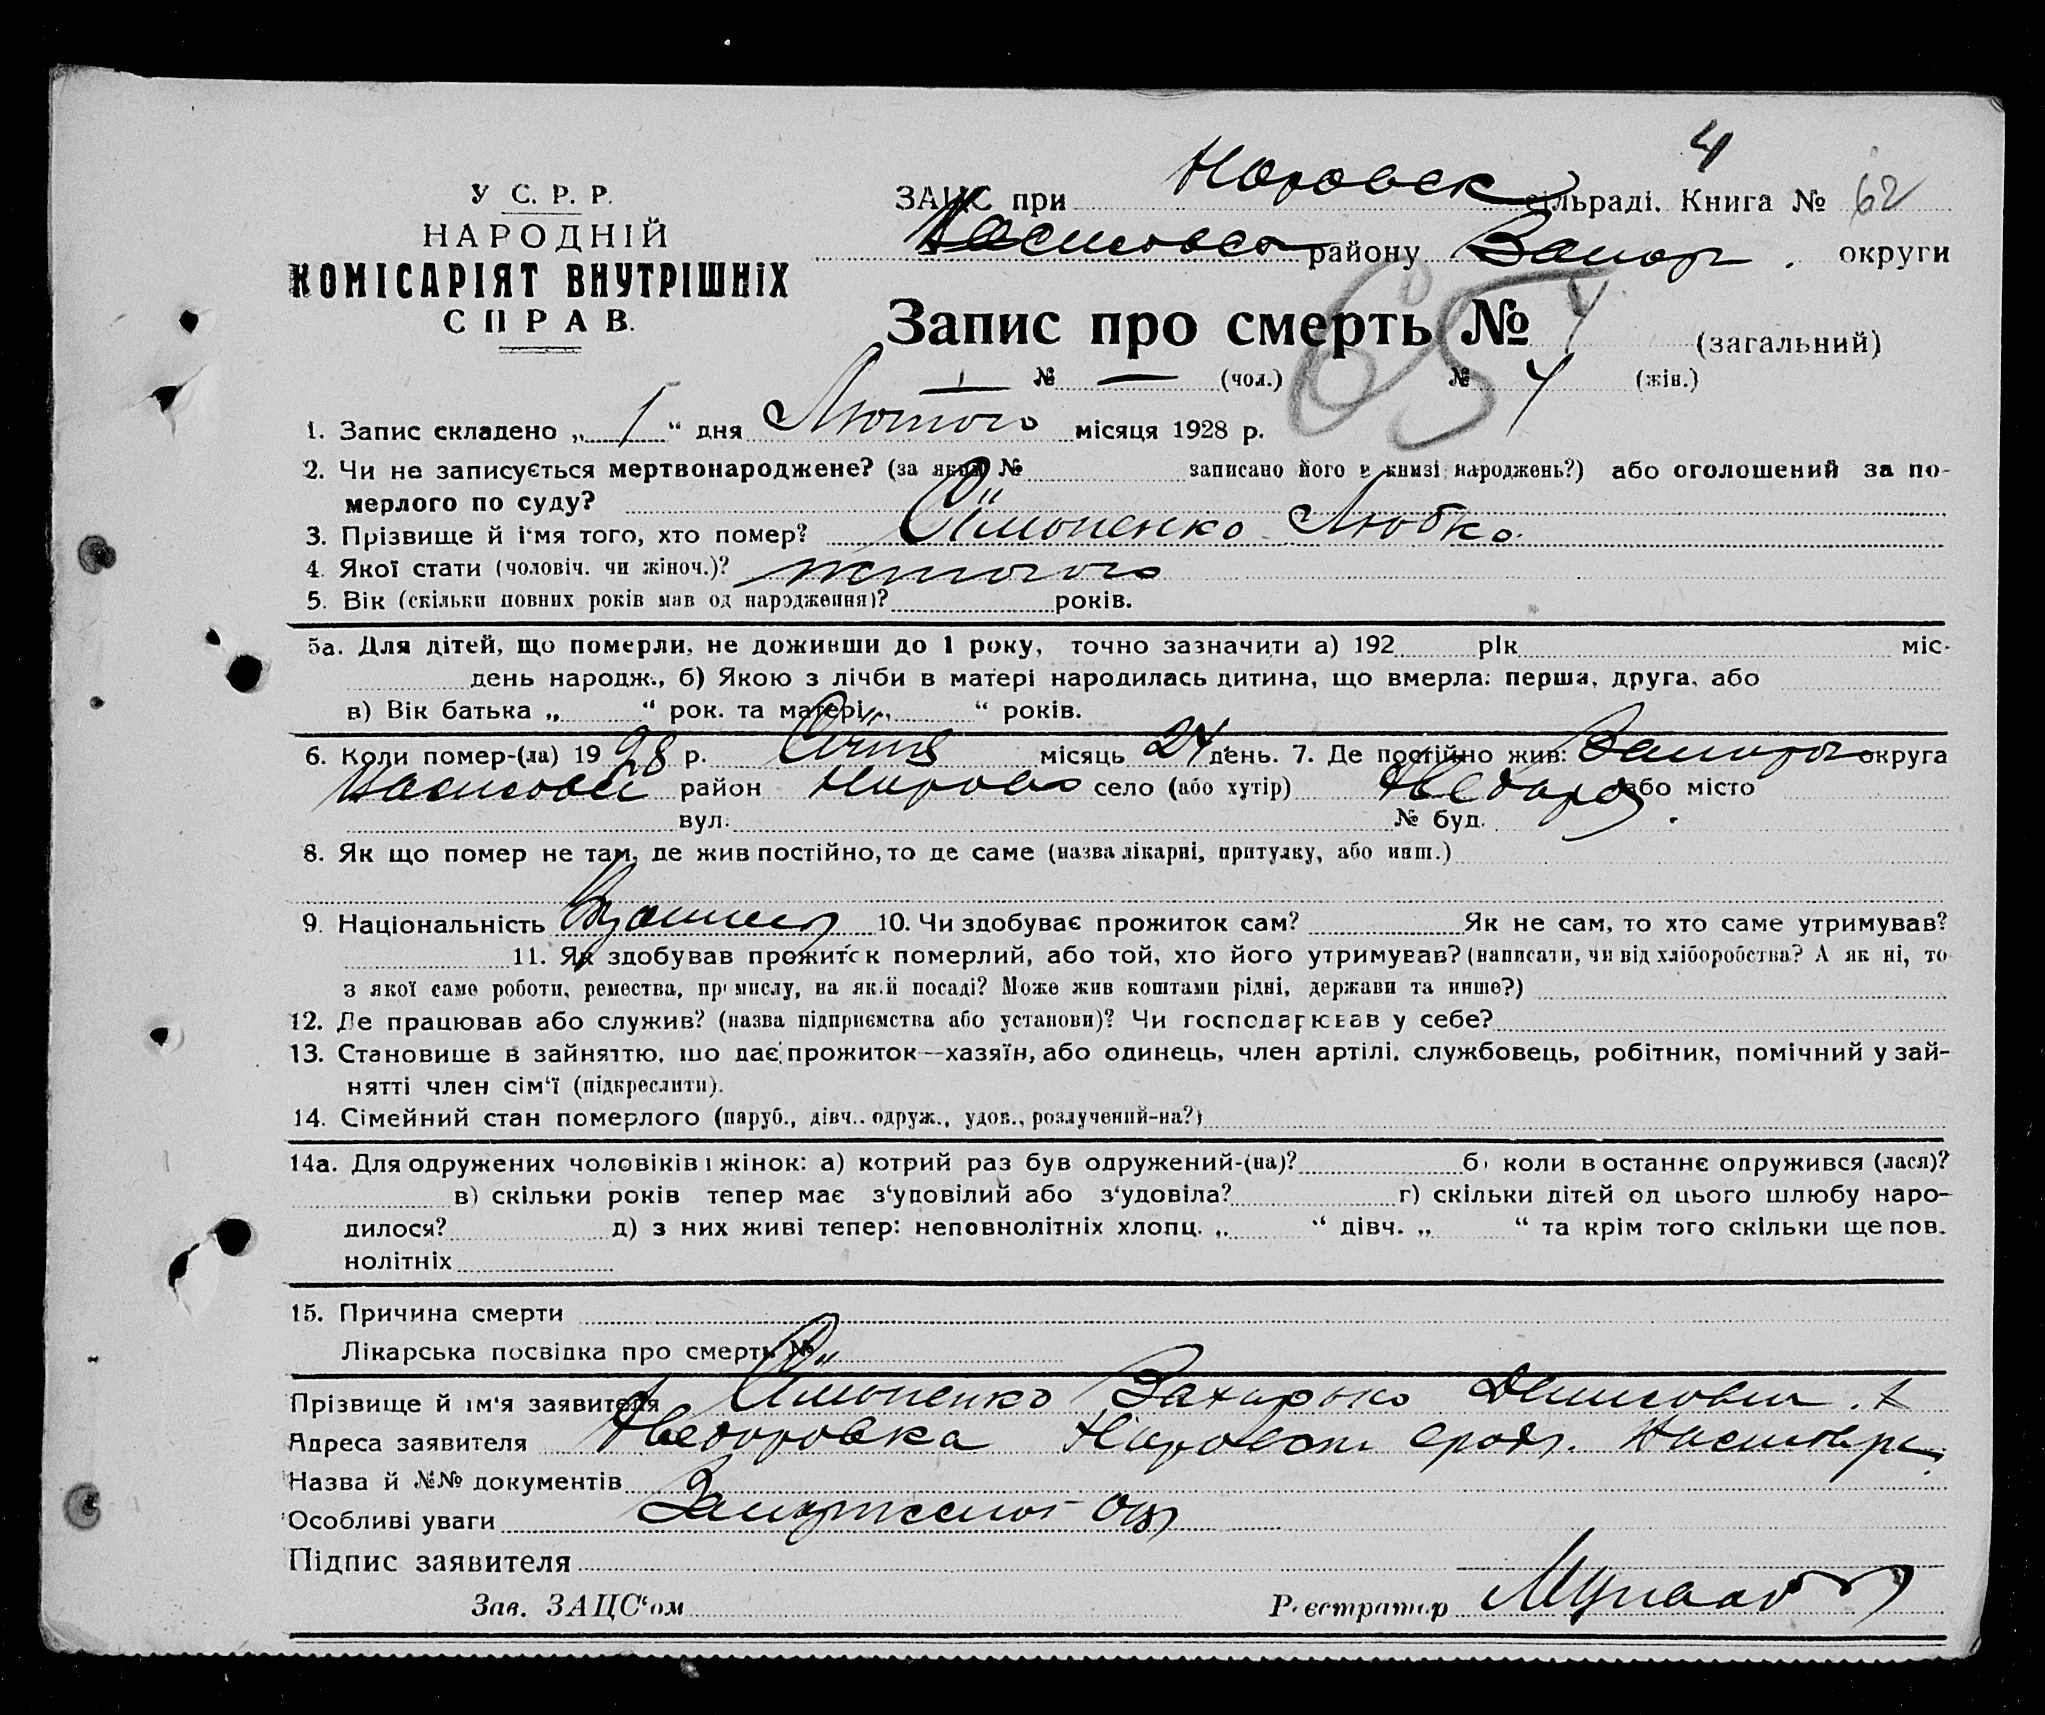 4
У С. Р. Р.
НАРОДНІЙ
КОМІСАРІЯТ ВНУТРІШНІХ
СПРАВ.
ЗАЦС при сільраді. Книга № 62
району Запор. округи
65
Запис про смерть № 4 (загальний)
№ — (чол.) № 4 (жін.)
1. Запис складено „ 1 “ дня Лютого місяця 1928 р.
2. Чи не записується мертвонароджене? (за яким № записано його в книзі народжень?) або оголошений за по-
мерлого по суду?
3. Прізвище й і‘мя того, хто помер? Сімоненко Любка.
4. Якої стати (чоловіч. чи жіноч.)? жіночого
5. Вік (скільки повних років мав од народження)? років.
5а. Для дітей, що померли, не доживши до 1 року, точно зазначити а) 192 рік міс.
день народж., б) Якою з лічби в матері народилась дитина, що вмерла: перша, друга, або
в) Вік батька „ “ рок. та матері „ “ років.
6. Коли помер-(ла) 1928 р. Січня місяць 24 день. 7. Де постійно жив: округа
район село (або хутір) або місто
вул. № буд.
8. Як що помер не там, де жив постійно, то де саме (назва лікарні, притулку, або инш.)
9. Національність 10. Чи здобуває прожиток сам? Як не сам, то хто саме утримував?
11. Як здобував прожиток померлий, або той, хто його утримував? (написати, чи від хліборобства? А як ні, то
з якої саме роботи, ремества, промислу, на якій посаді? Може жив коштами рідні, держави та инше?)
12. Де працював або служив? (назва підприємства або установи)? Чи господарював у себе?
13. Становище в зайняттю, що дає прожиток—хазяїн, або одинець, член артілі, службовець, робітник, помічний у зай-
нятті член сім‘ї (підкреслити).
14. Сімейний стан померлого (паруб., дівч.. одруж., удов., розлучений-на?)
14а. Для одружених чоловіків і жінок: а) котрий раз був одружений-(на)? б) коли в останнє одружився (лася)?
в) скільки років тепер має з‘удовілий або з‘удовіла? г) скільки дітей од цього шлюбу наро-
дилося? д) з них живі тепер: неповнолітніх хлопц. „ “ дівч. „ “ та крім того скільки ще пов.
нолітніх
15. Причина смерти
Лікарська посвідка про смерть №
Прізвище й ім‘я заявителя Сімоненко Захарько Денисович
Адреса заявителя Федоровка
Назва й №№ документів
Особливі уваги
Підпис заявителя
Зав. ЗАЦС‘ом Реєстратор